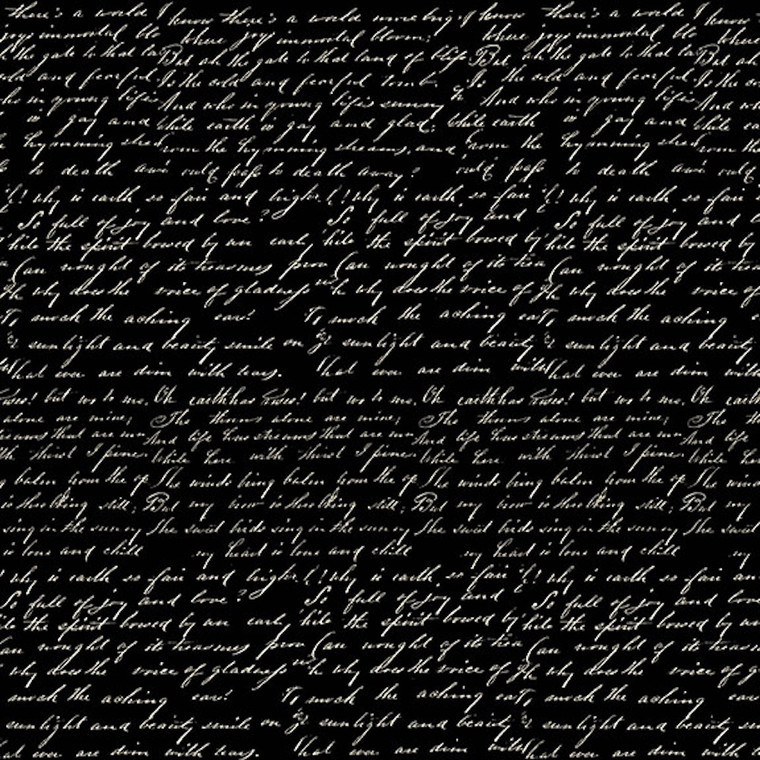 there's a world I know there's a world I know there's a world I know
joys immortal where joys immortal bloom; where joys immortal where
the gate to that But ah the gate to that land of bliss But ah the gate to that But ah
old and fearful Is the old and fearful tomb. Is the old and fearful Is the old
in young life's And who in young life's sunny And who in young life's And
is gay and while earth is gay and glad; while earth is gay and while
hymning from the hymning streams, and from the hymning from the
to death away pass to death away? pass to death
why is earth so fair and bright! why is earth so fair why is earth so fair
So full of joy and love? So full of joy and So full of joy and
the spirit bowed by early the spirit bowed by the spirit bowed by
Can nought of its treasures from Can nought of its Can nought of its
why does the voice of gladness why does the voice of why does the voice of
To mock the aching ear! To mock the aching To mock the aching
sunlight and beauty smile on sunlight and beauty sunlight and beauty
that ever are dim with tears. that ever are dim with that ever are dim with
but not to me, Oh earth has but not to me, Oh earth has but not to me, Oh earth
alone are mine; The thorns alone are mine; The thorns alone are mine; The
streams that are And life has streams that are And life has streams that are And life
thirst I pine; While here with thirst I pine; While here with thirst I pine; While here
balm from the The winds bring balm from the The winds bring balm from the The winds
is still; But my brow is still; But my brow is still; But my
sing in the sunny The sweet birds sing in the sunny The sweet birds sing in the sunny The sweet
is lone and chill my heart is lone and chill my heart is lone and chill my
why is earth so fair and bright! why is earth, so fair why is earth so fair
So full of joy and love? So full of joy and So full of joy and love
the spirit bowed by early the spirit bowed by the spirit bowed by
nought of its treasures from Can nought of its Can nought of its
why does the voice of gladness why does the voice of why does the voice of
mock the aching ear! To mock the aching To mock the aching ear
sunlight and beauty smile on sunlight and beauty sunlight and beauty
that ever are dim with tears. that ever are dim with that ever are dim with